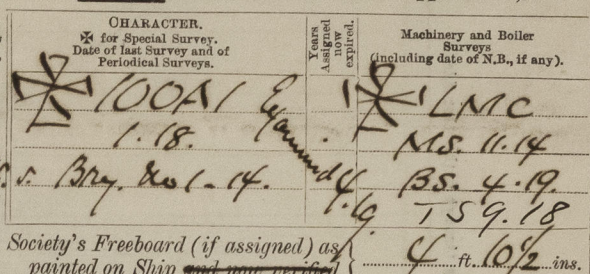 CHARACTER.
✠ for Special Survey.
Date of last Survey and of
Periodical Surveys.
Years
Assigned
now
expired.
Machinery and Boiler
Surveys
(including date of N.B., if any).
✠ 100A1
1.18.
s. Bry. No 1-14.
Examined
4.19
✠ LMC
MS. 11.14
BS. 4.19.
TS 9.18
Society's Freeboard (if assigned) as
painted on Ship and now verified
4 ft. 10½ ins.